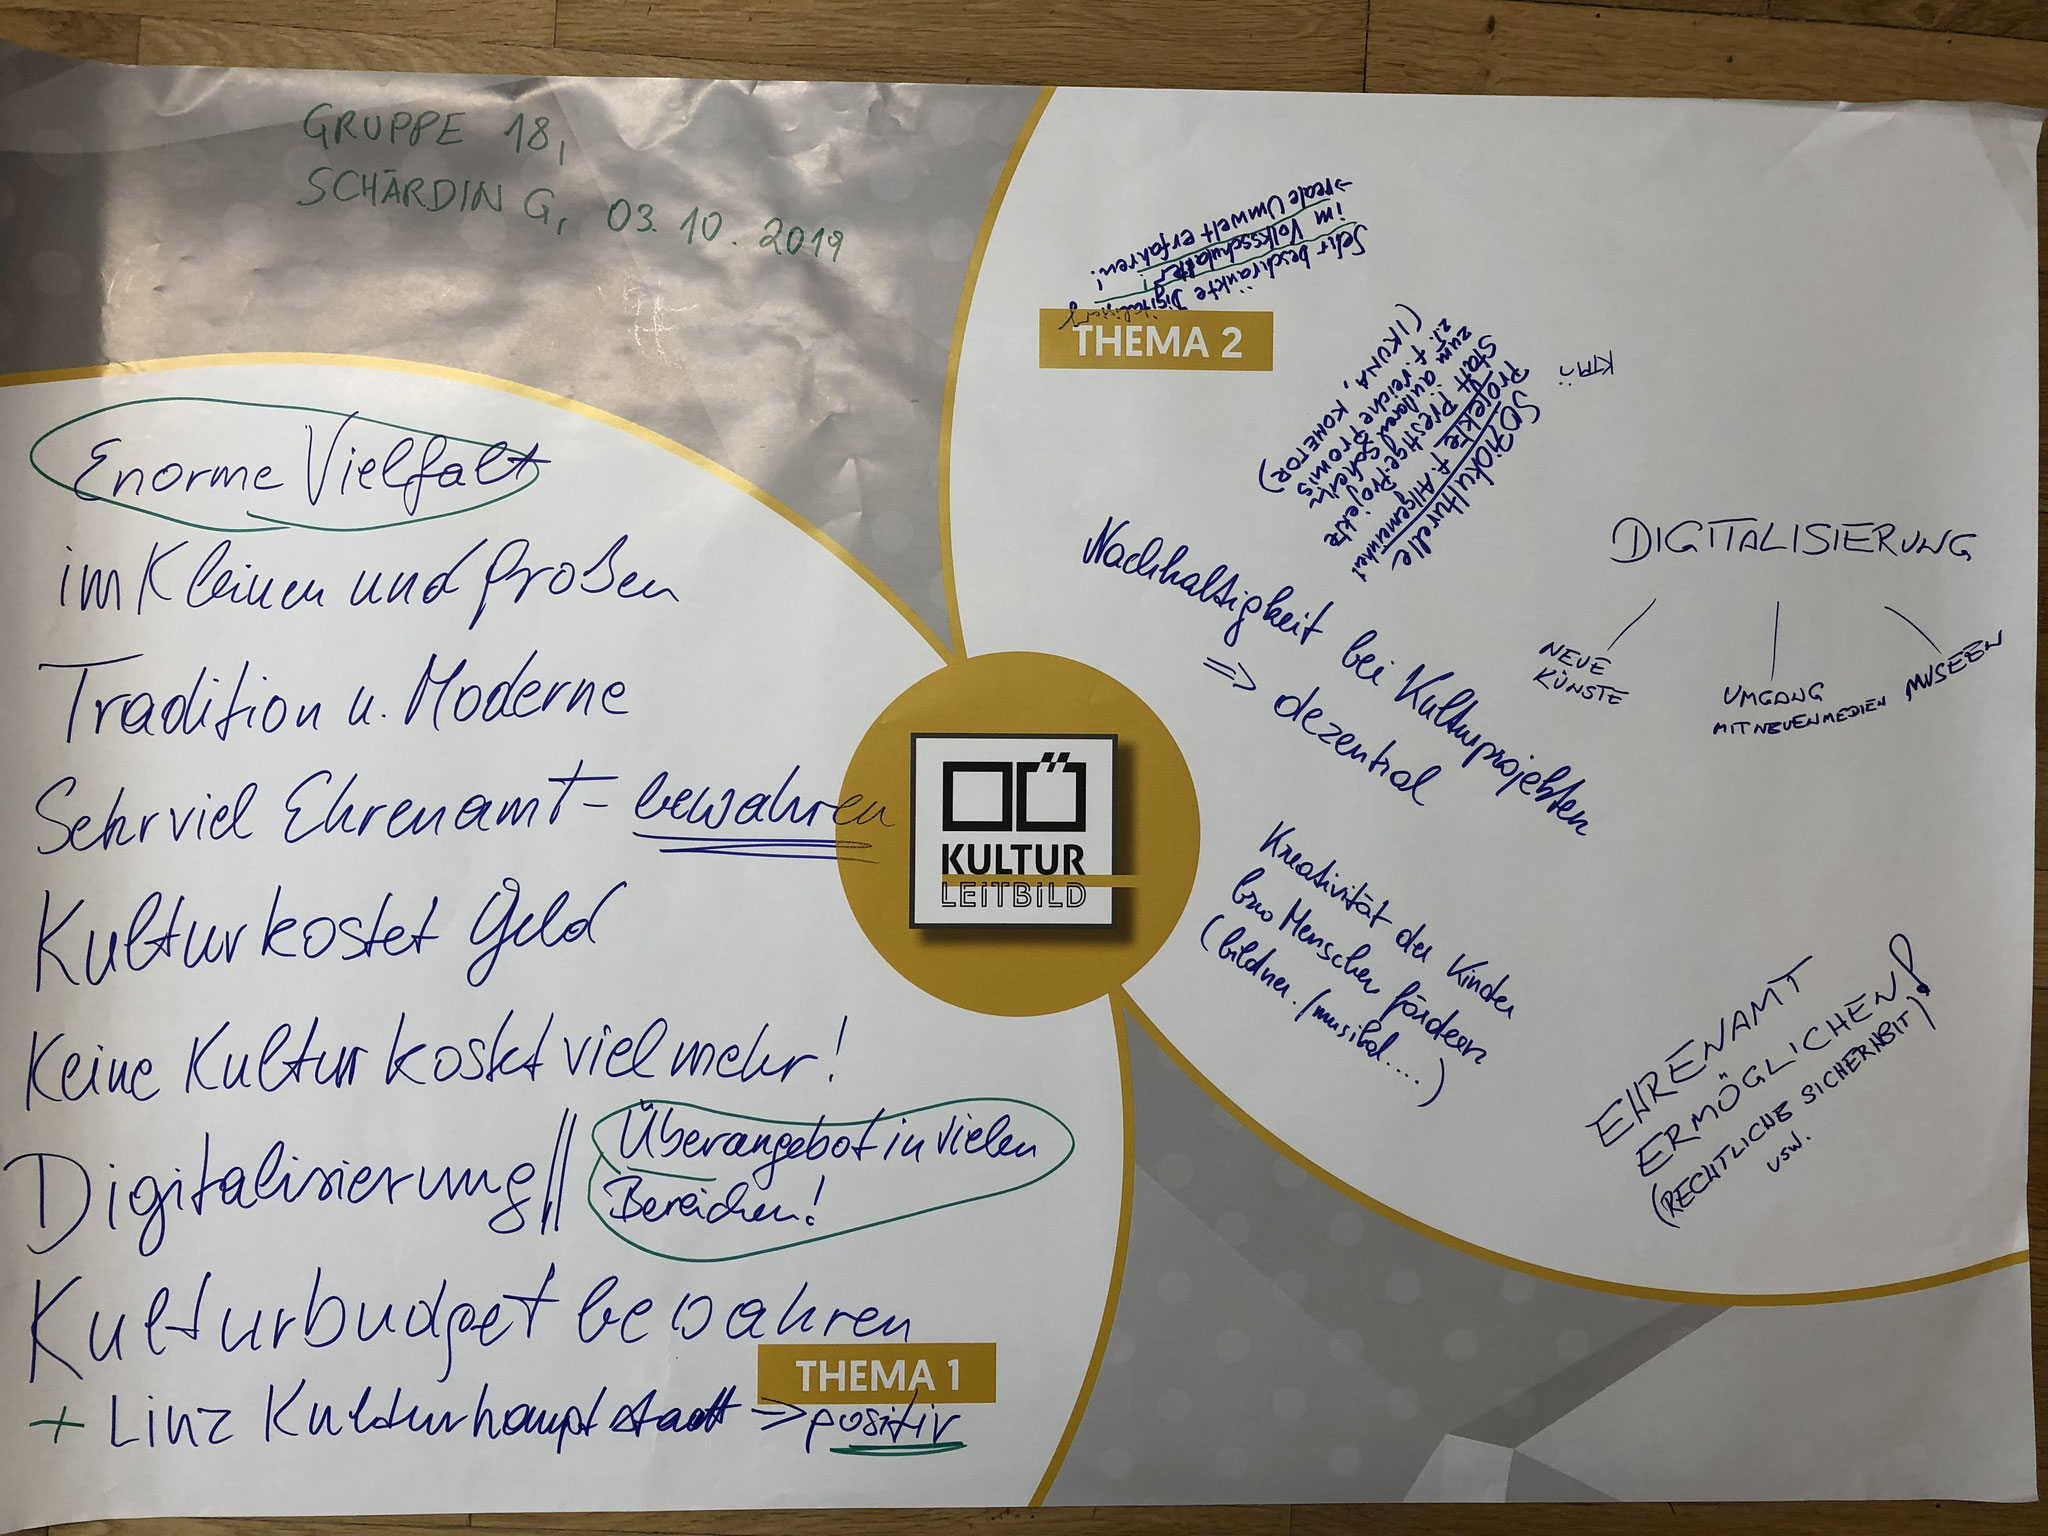 GRUPPE 18,
SCHÄRDING, 03.10.2019
Enorme Vielfalt
im Kleinen und Großen
Tradition u. Moderne
Sehr viel Ehrenamt - bewahren
Kultur kostet Geld
Keine Kultur kostet viel mehr!
Digitalisierung ||
Überangebot in vielen
Bereichen!
Kulturbudget bewahren
THEMA 1
+ Linz Kulturhauptstadt => positiv
OÖ
KULTUR
LEITBILD
THEMA 2
Sehr beschränkte Digitalisierung
im Volksschulalter!
→ reale Umwelt erfahren!
Soziokulturelle
Projekte f. Allgemeinheit
statt Prestige-Projekte
zum äußeren Schein
z.T. f. reiche Promis
(IKUNA, KOMETOR)
Nachhaltigkeit bei Kulturprojekten
=> dezentral
DIGITALISIERUNG
NEUE
KÜNSTE
UMGANG
MIT NEUEN MEDIEN
MUSEEN
Kreativität der Kinder
bzw Menschen fördern
(bildner./musikal....)
EHRENAMT
ERMÖGLICHEN!
(RECHTLICHE SICHERHEIT)
usw.